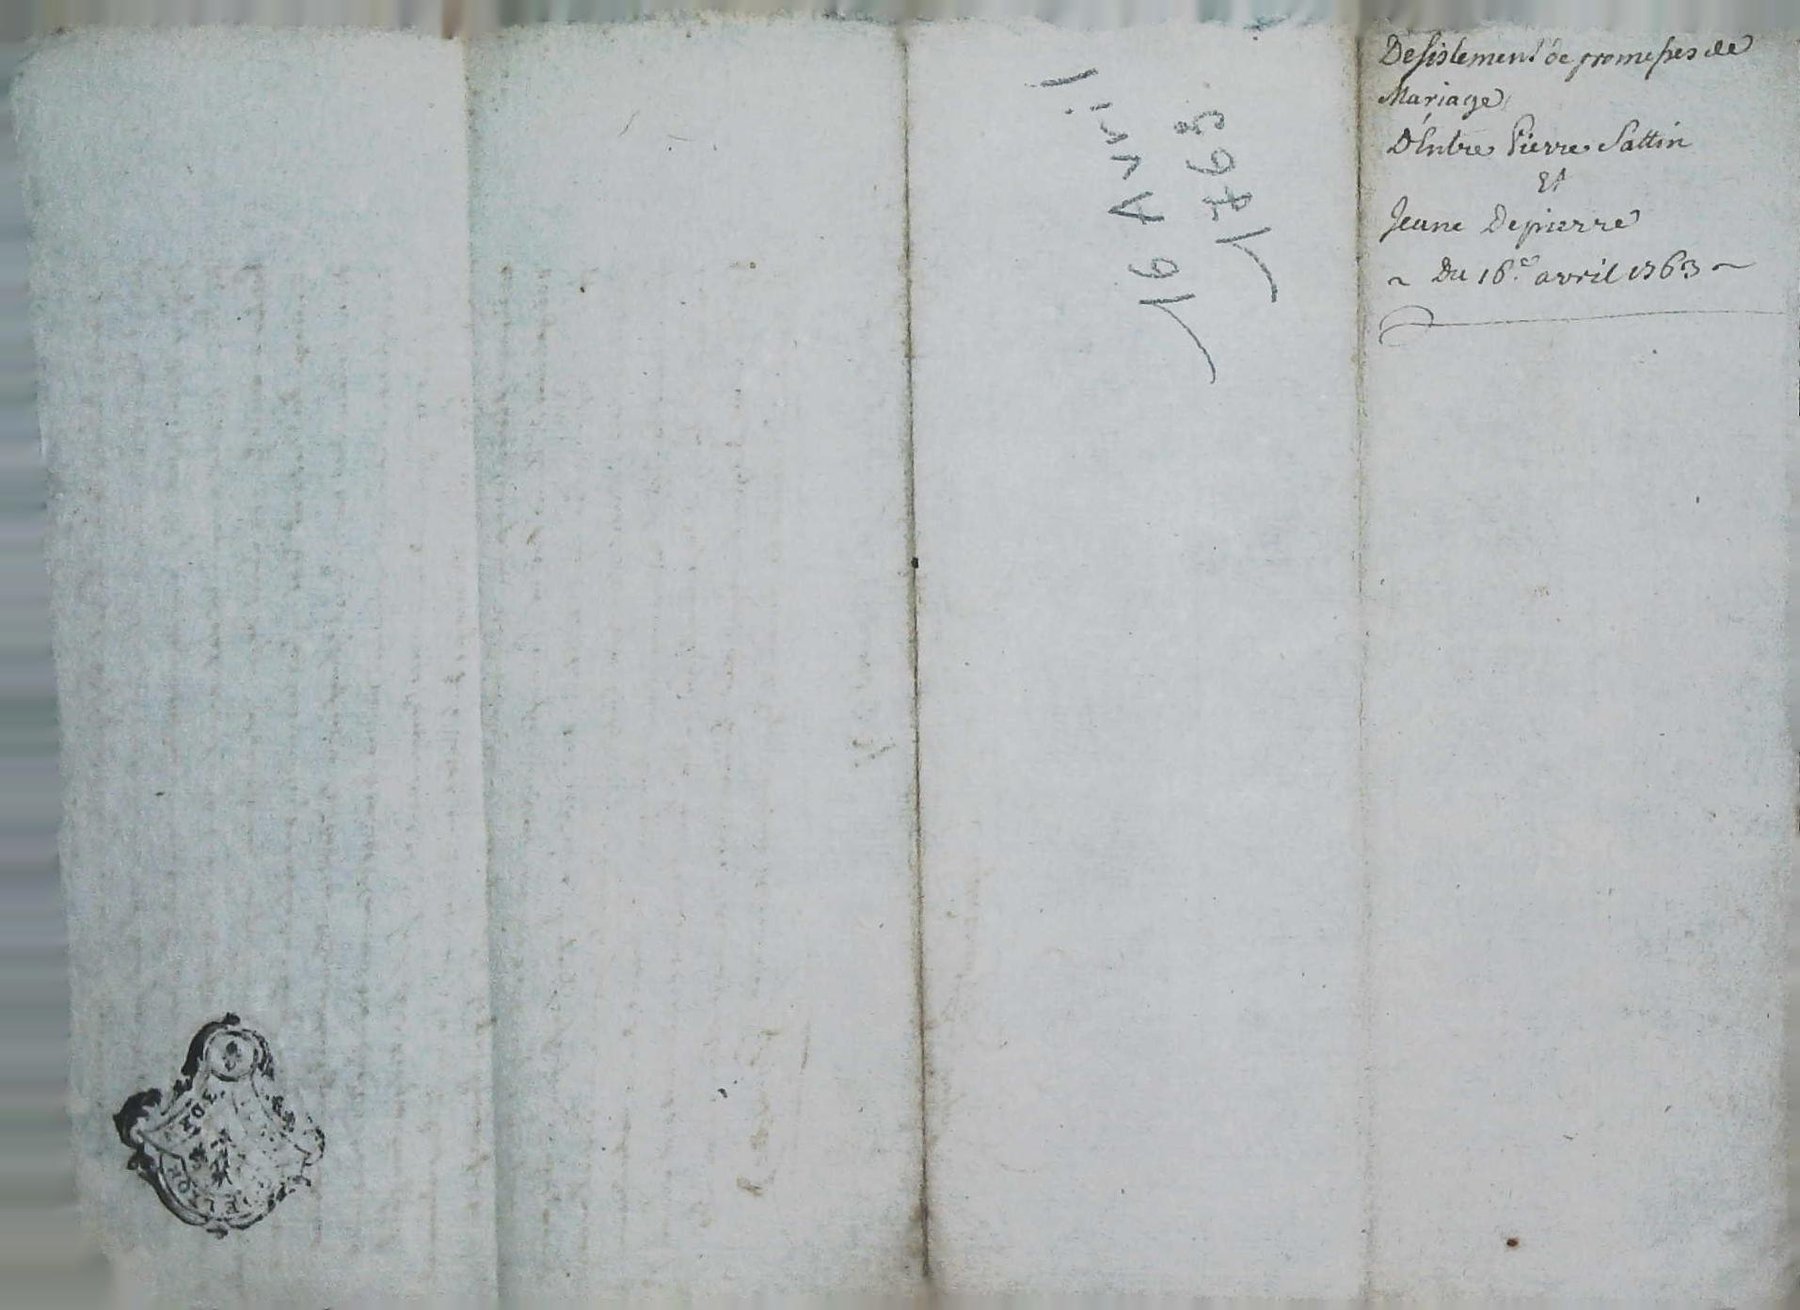 Desistement de promesses de
Mariage
D'Entre Pierre Sattin
Et
Jeane Depierre
~ Du 16.e avril 1763 ~
16 Avril
1763